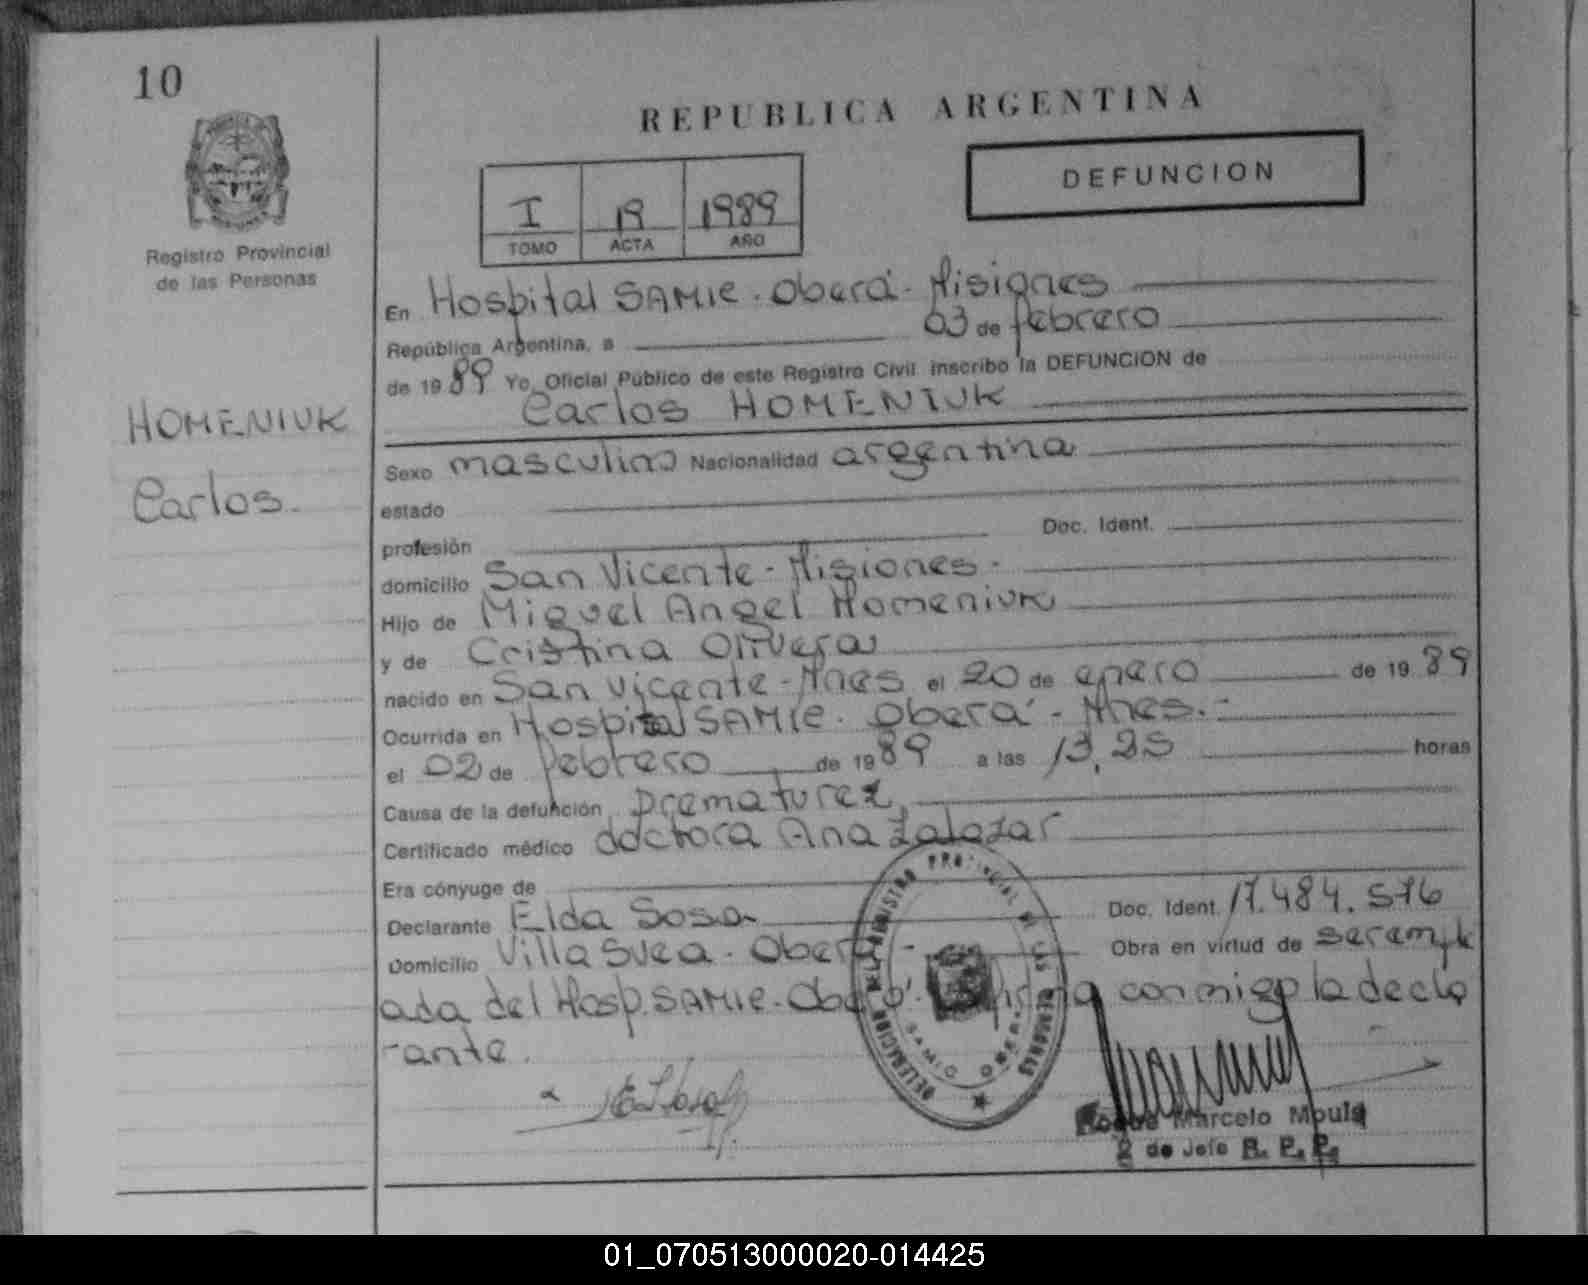 10
REPUBLICA ARGENTINA
DEFUNCION
I 19 1989
TOMO ACTA AÑO
Registro Provincial
de las Personas
En Hospital SAMIC. Oberá. Misiones
República Argentina, a 03 de febrero
de 1989 Yo, Oficial Público de este Registro Civil inscribo la DEFUNCION de
Carlos HOMENIUK
HOMENIUK
Carlos.
Sexo masculino Nacionalidad argentina
estado
profesión Doc. Ident.
domicilio San Vicente - Misiones.
Hijo de Miguel Angel Homeniuk
y de Cristina Olivera
nacido en San Vicente - Mnes el 20 de enero de 1989
Ocurrida en Hospital SAMIC. Oberá - Mnes.-
el 02 de febrero de 1989 a las 13,25 horas
Causa de la defunción prematurez
Certificado médico doctora Ana Zalazar
Era cónyuge de
Declarante Elda Sosa Doc. Ident. 17.484.576
Domicilio Villa Svea. Oberá - Obra en virtud de ser emple
ada del Hosp. SAMIC. Oberá. Firma conmigo la decla
rante.
DELEGACION DEL REGISTRO PROVINCIAL DE LAS PERSONAS
SAMIC OBERA
Roque Marcelo
2 de Jefe R. P. P.
01_070513000020-014425